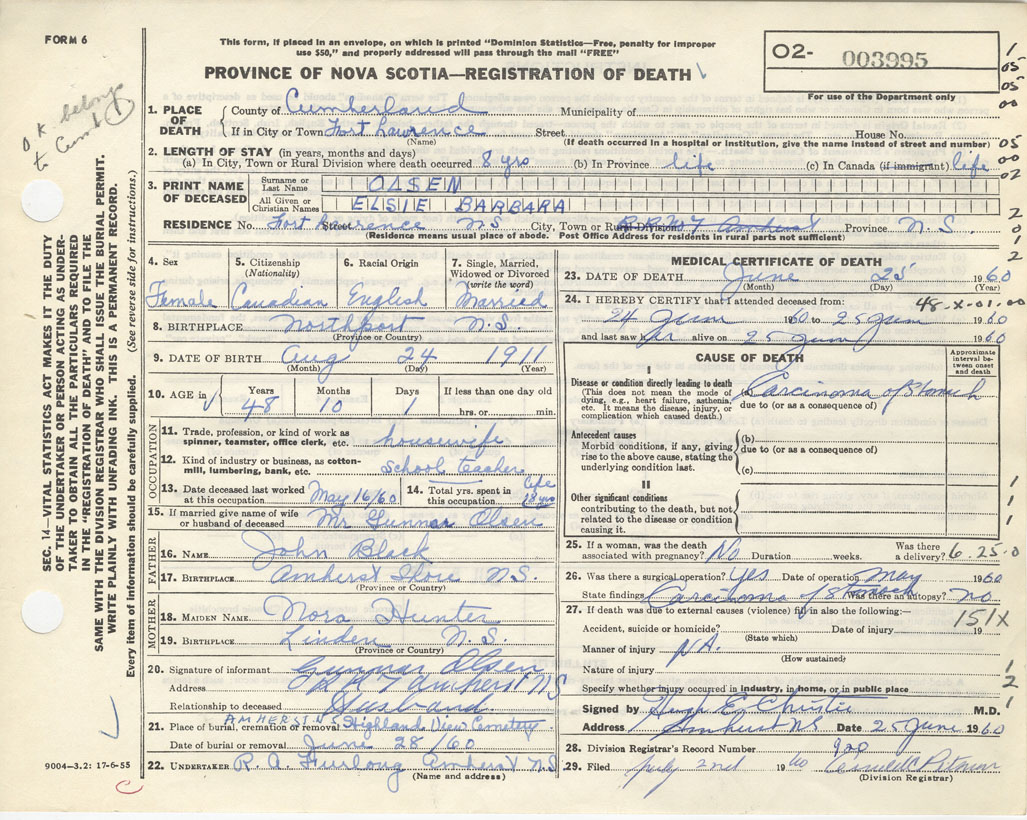 FORM 6
This form, if placed in an envelope, on which is printed "Dominion Statistics—Free, penalty for improper
use $50," and properly addressed will pass through the mail "FREE"
PROVINCE OF NOVA SCOTIA—REGISTRATION OF DEATH
O2- 003995
For use of the Department only
1
05
05
00
O.K. belongs
to Cumb 1
1. PLACE OF DEATH
County of Cumberland Municipality of
If in City or Town Fort Lawrence Street House No.
(Name) (If death occurred in a hospital or institution, give the name instead of street and number)
05
00
02
2. LENGTH OF STAY (in years, months and days)
(a) In City, Town or Rural Division where death occurred 8 yrs (b) In Province life (c) In Canada (if immigrant) life
3. PRINT NAME OF DECEASED
Surname or Last Name OLSEN
All Given or Christian Names ELSIE BARBARA
2
0
1
2
RESIDENCE No. Fort Lawrence Street NS City, Town or Rural Division Amherst Province N.S.
(Residence means usual place of abode. Post Office Address for residents in rural parts not sufficient)
SEC. 14—VITAL STATISTICS ACT MAKES IT THE DUTY
OF THE UNDERTAKER OR PERSON ACTING AS UNDER-
TAKER TO OBTAIN ALL THE PARTICULARS REQUIRED
IN THE "REGISTRATION OF DEATH" AND TO FILE THE
SAME WITH THE DIVISION REGISTRAR WHO SHALL ISSUE THE BURIAL PERMIT.
WRITE PLAINLY WITH UNFADING INK. THIS IS A PERMANENT RECORD.
Every item of information should be carefully supplied. (See reverse side for instructions.)
4. Sex
Female
5. Citizenship
(Nationality)
Canadian
6. Racial Origin
English
7. Single, Married,
Widowed or Divorced
(write the word)
Married
8. BIRTHPLACE Northport N.S.
(Province or Country)
9. DATE OF BIRTH Aug 24 1911
(Month) (Day) (Year)
10. AGE in
Years 48 Months 10 Days 1 If less than one day old
hrs. or min.
OCCUPATION
11. Trade, profession, or kind of work as
spinner, teamster, office clerk, etc. housewife
12. Kind of industry or business, as cotton-
mill, lumbering, bank, etc. school teacher
13. Date deceased last worked
at this occupation May 16/60
14. Total yrs. spent in
this occupation life
18 yrs
15. If married give name of wife
or husband of deceased Mr Gunnar Olsen
FATHER
16. NAME John Black
17. BIRTHPLACE Amherst Shore NS.
(Province or Country)
MOTHER
18. MAIDEN NAME Nora Hunter
19. BIRTHPLACE Linden N.S.
(Province or Country)
20. Signature of informant Gunnar Olsen
Address Amherst NS
Relationship to deceased Husband
21. Place of burial, cremation or removal AMHERST NS Highland View Cemetery
Date of burial or removal June 28/60
22. UNDERTAKER R. A. Furlong Amherst N.S
(Name and address)
9004—3.2: 17-6-55
MEDICAL CERTIFICATE OF DEATH
23. DATE OF DEATH June 25 1960
(Month) (Day) (Year)
24. I HEREBY CERTIFY that I attended deceased from:
48-X-01.00
24 June 1960 to 25 June 1960
and last saw her alive on 25 June 1960
CAUSE OF DEATH
Approximate
interval be-
tween onset
and death
I
Disease or condition directly leading to death
(This does not mean the mode of
dying, e.g., heart failure, asthenia,
etc. It means the disease, injury, or
complication which caused death.)
(a) Carcinoma of Stomach
due to (or as a consequence of)
Antecedent causes
Morbid conditions, if any, giving
rise to the above cause, stating the
underlying condition last.
(b)
due to (or as a consequence of)
(c)
II
Other significant conditions
contributing to the death, but not
related to the disease or condition
causing it.
1
1
1
25. If a woman, was the death
associated with pregnancy? No Duration weeks. Was there
a delivery? 6.25.0
26. Was there a surgical operation? yes Date of operation May 1960
State findings Carcinoma of Stomach Was there an autopsy? no
27. If death was due to external causes (violence) fill in also the following:—
151X
Accident, suicide or homicide? Date of injury 19
(State which)
Manner of injury NA.
(How sustained)
Nature of injury
Specify whether injury occurred in industry, in home, or in public place
1
2
1
Signed by Hugh E. Christie M.D.
Address Amherst NS Date 25 June 1960
28. Division Registrar's Record Number 920
29. Filed July 2nd 1960
(Division Registrar)